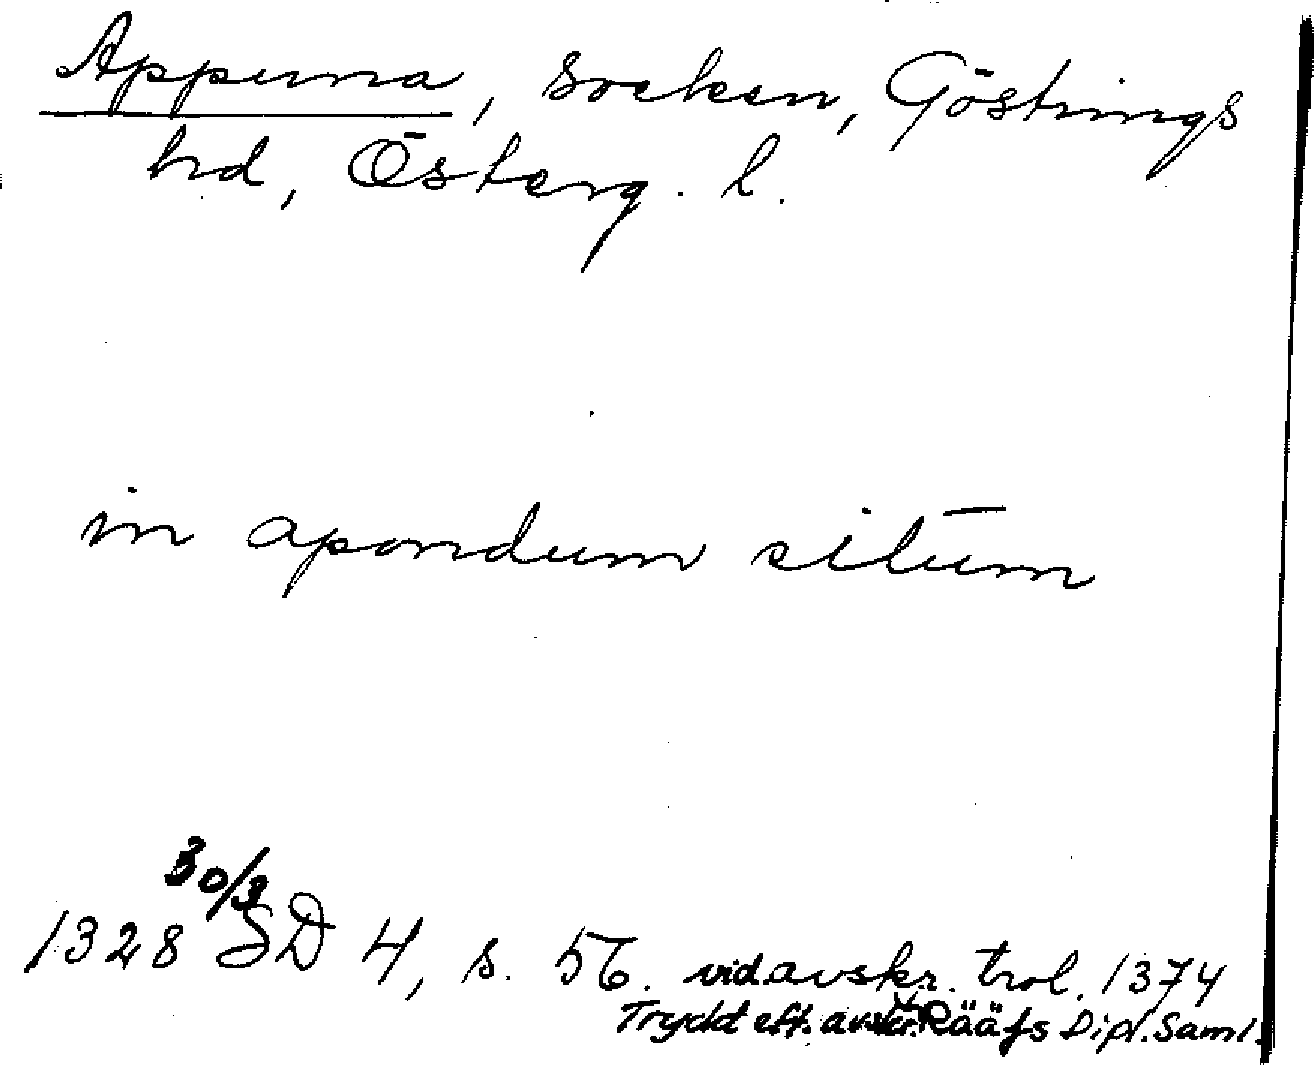 Appuna, socken, Göstrings
hd, Österg. l.
in apondum situm
30/3
1328 SD 4, s. 56. vid.avskr. trol. 1374
Tryckt eft. avskr. i Rääfs Dipl. Saml.